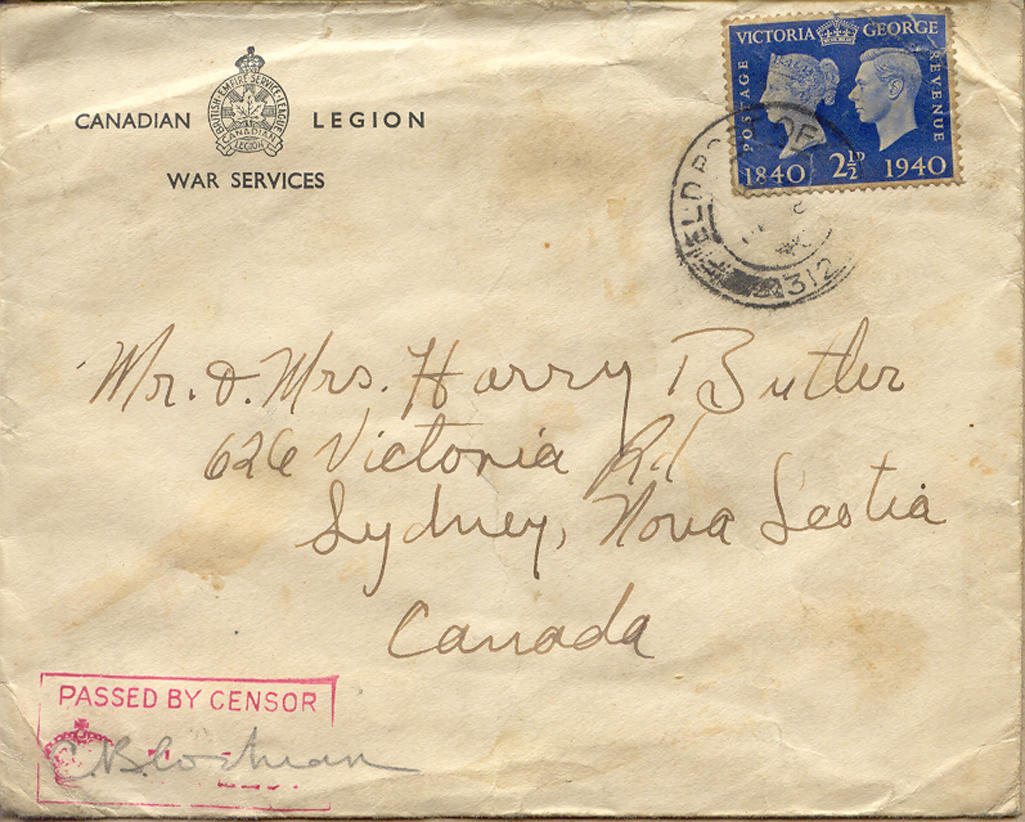 VICTORIA GEORGE
POSTAGE
REVENUE
1840 2½D 1940
BRITISH·EMPIRE SERVICE·LEAGUE
CANADIAN LEGION
CANADIAN
LEGION
WAR SERVICES
FIELD POST OF
312
Mr. & Mrs. Harry Butler
626 Victoria Rd
Sydney, Nova Scotia
Canada
PASSED BY CENSOR